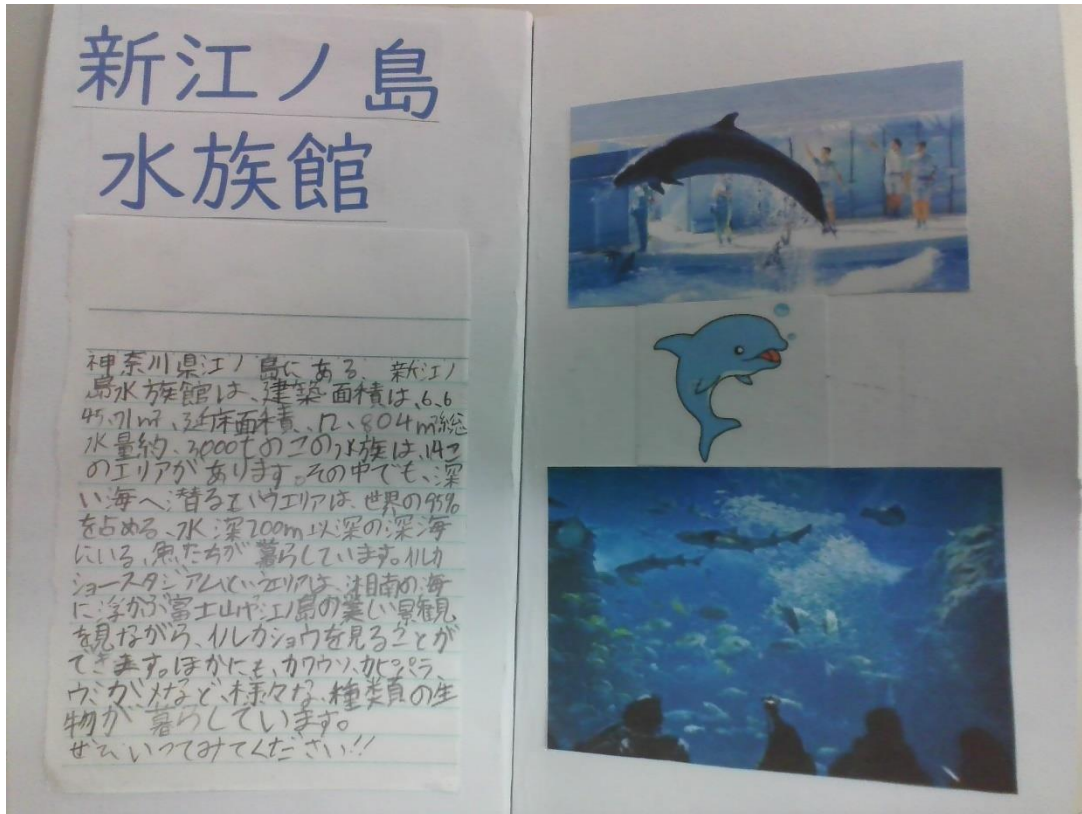 新江ノ島
水族館
神奈川県江ノ島にある、新江ノ
島水族館は、建築面積は、6、6
45、71㎡、延床面積、12、804㎡総
水量約、3000tのこの水族は、14こ
のエリアがあります。その中でも、深
い海へ潜るというエリアは、世界の95%
を占める、水深200m以深の深海
にいる、魚たちが暮らしています。イルカ
ショースタジアムというエリアは、湘南の海
に浮かぶ富士山や江ノ島の美しい景観
を見ながら、イルカショウを見ることが
できます。ほかにも、カワウソ、カピバラ、
ウミガメなど、様々な、種類の生
物が暮らしています。
ぜひいってみてください!!